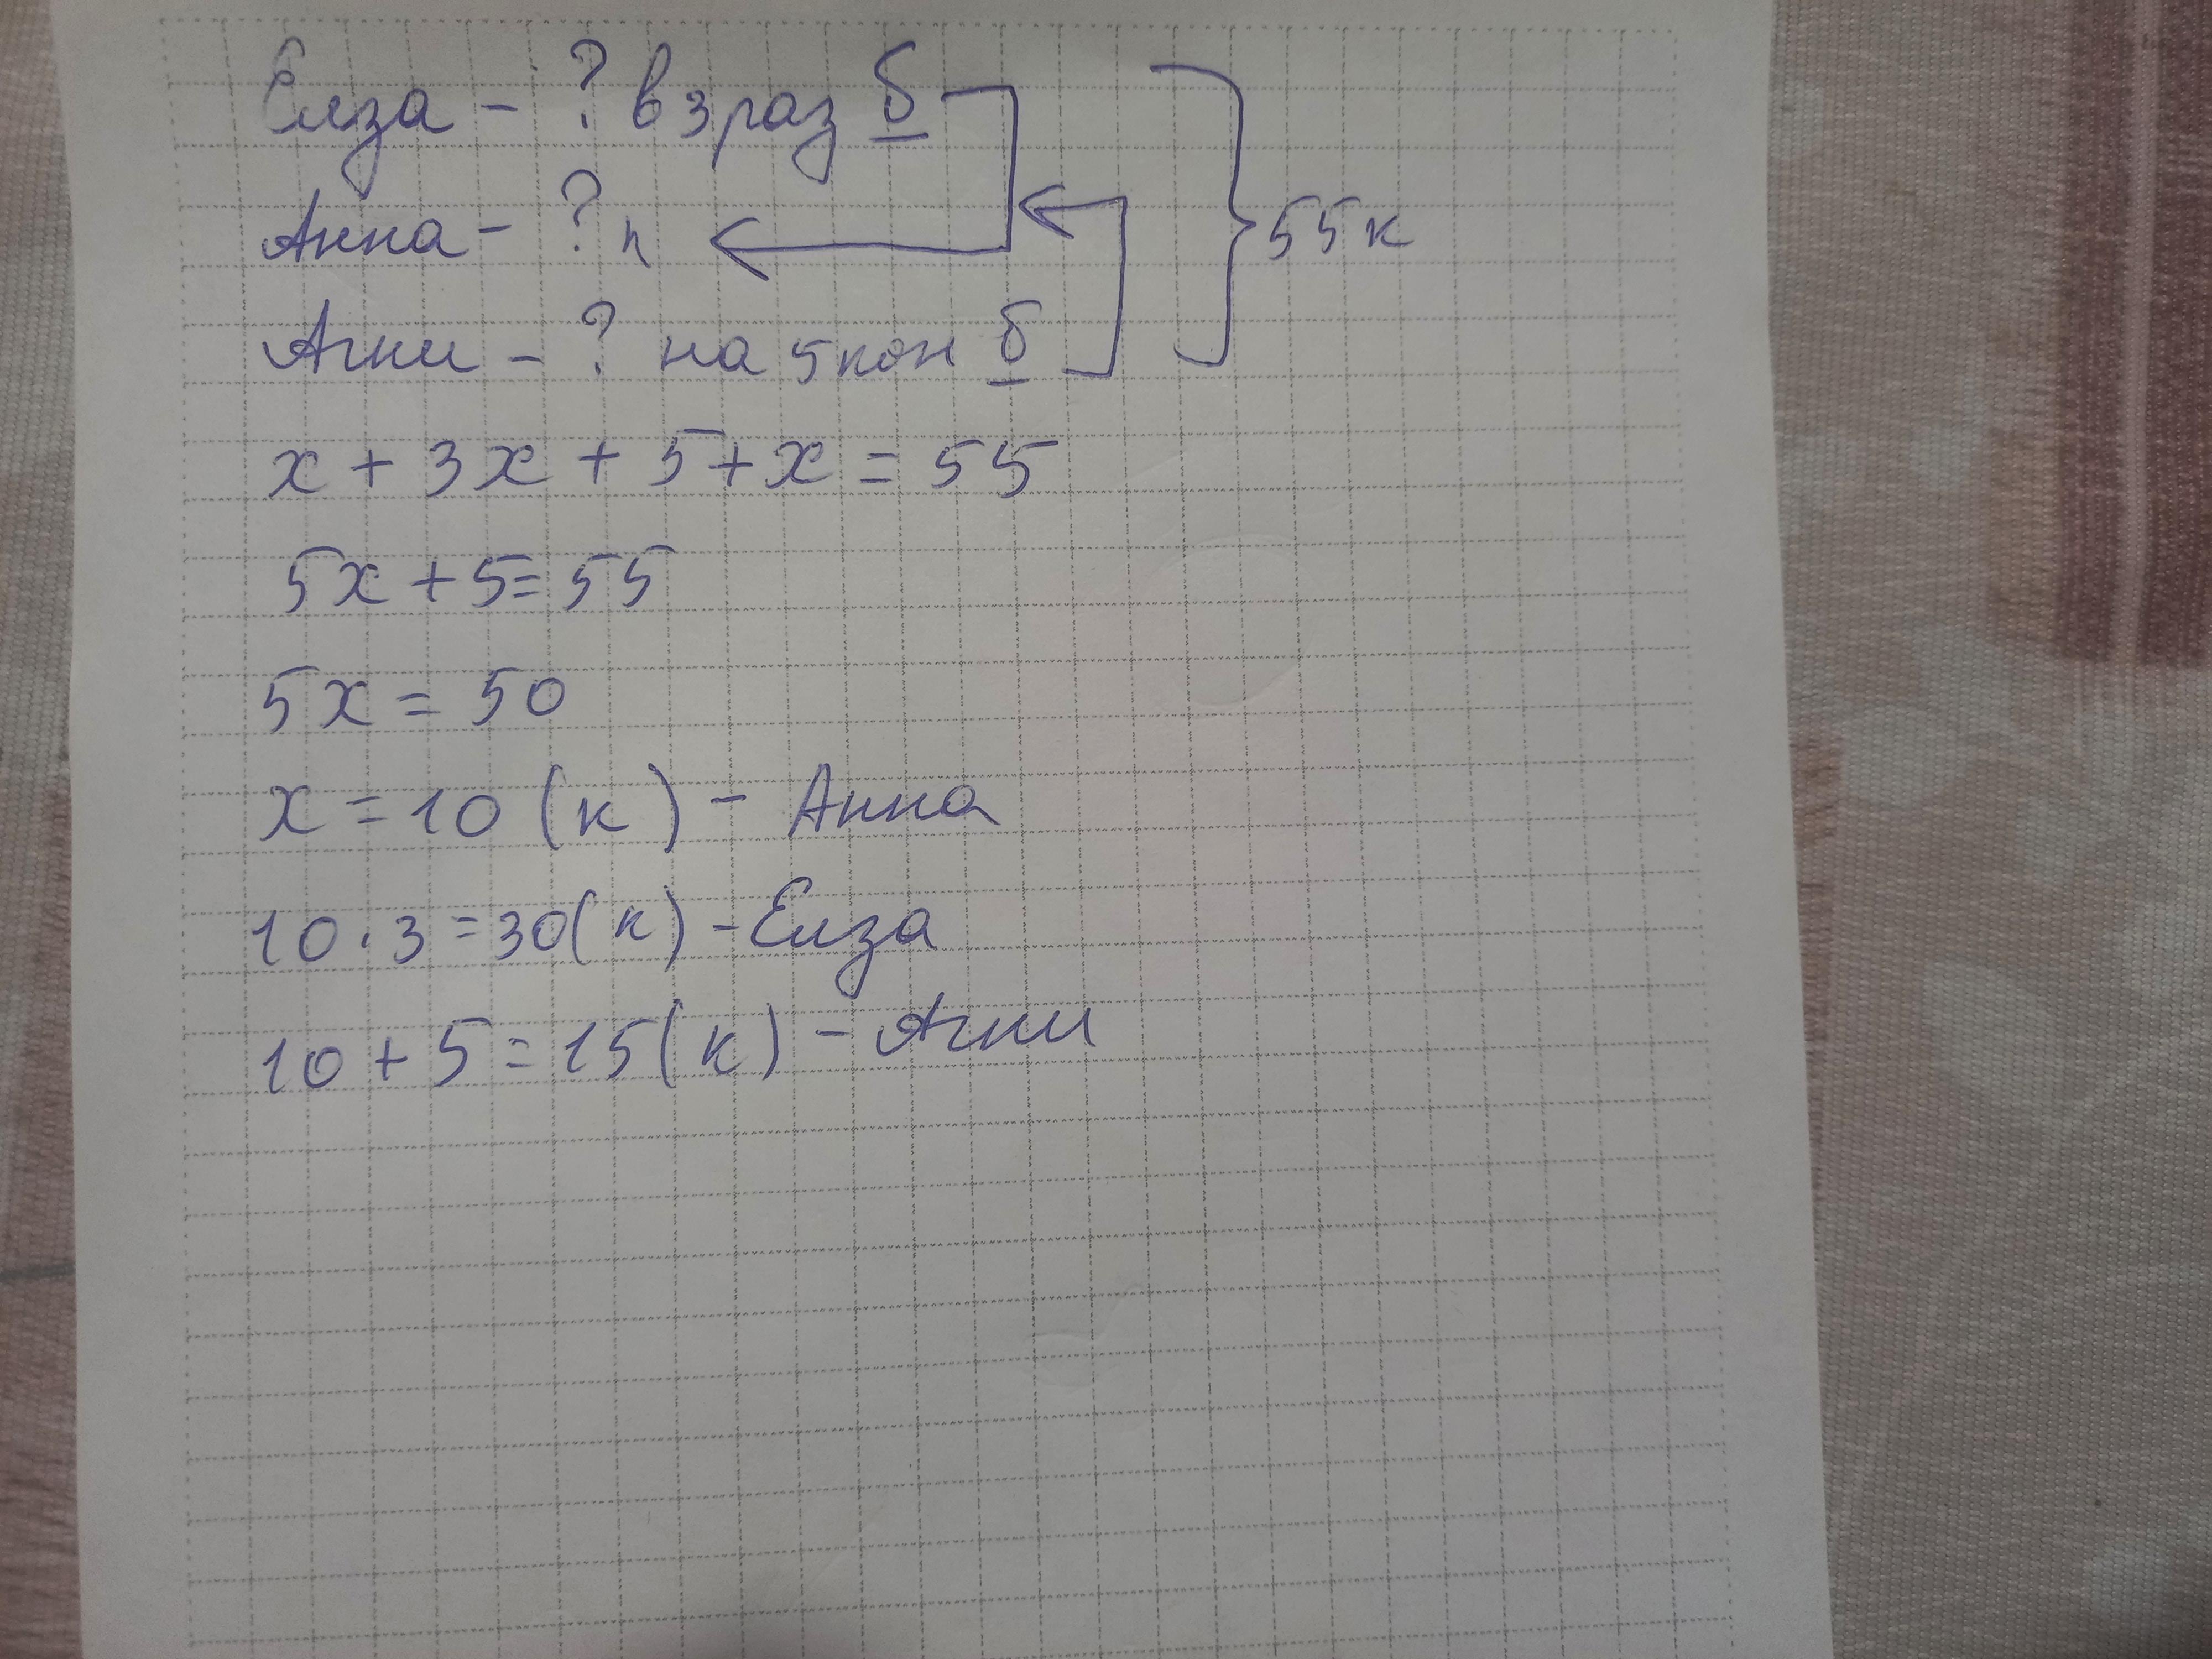 Елза - ? в 3 раз б
Анна - ? к
55к
Агни - ? на 5 кон б
x + 3x + 5 + x = 55
5x + 5 = 55
5x = 50
x = 10 (к) - Анна
10 · 3 = 30 (к) - Елза
10 + 5 = 15 (к) - Агни